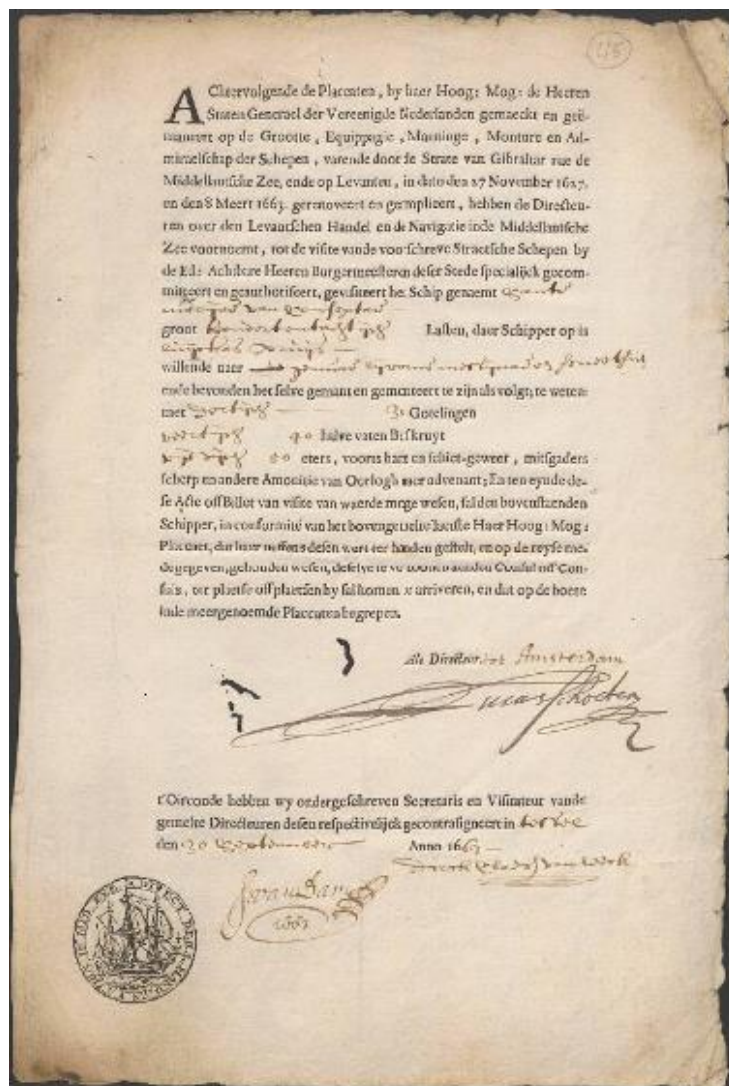 115
AChtervolgende de Placcaten, by haer Hoog: Mog: de Heeren
Staten Generael der Vereenigde Nederlanden gemaeckt en geë-
maneert op de Groote, Equippagie, Manninge, Monture en Ad-
miraelschap der Schepen, varende door de Strate van Gibraltar nae de
Middellantsche Zee, ende op Levanten, in dato den 27 November 1627.
en den 8 Meert 1663. gerenoveert en geamplieert, hebben de Directeu-
ren over den Levantschen Handel en de Navigatie inde Middellantsche
Zee voornoemt, tot de visite vande voorschreve Straetsche Schepen by
de Ed: Achtbare Heeren Burgermeesteren deser Stede specialijck gecom-
mitteert en geauthoriseert, gevisiteert het Schip genaemt
groot Lasten, daer Schipper op is
willende naer
ende bevonden het selve gemant en gemonteert te zijn als volgt; te weten
met Gotelingen
40 halve vaten Buskruyt
eters, voorts hant en schiet-geweer, mitsgaders
scherp en andere Amonitie van Oorlogh naer advenant; En ten eynde de-
se Acte off Billet van visite van waerde moge wesen, sal den bovenstaenden
Schipper, in conformité van het bovengemelte laetste Haer Hoog: Mog:
Placcaet, dat haer neffens desen wert ter handen gestelt, en op de reyse me-
degegeven, gehouden wesen, deselve te vertoonen aenden Consul off Con-
suls, ter plaetse off plaetsen by sal komen te arriveren, en dat op de boete
inde meergenoemde Placcaten begrepen.
Als Directeur tot Amsterdam
t'Oirconde hebben wy ondergeschreven Secretaris en Visitateur vande
gemelte Directeuren desen respectivelijck gecontrasigneert in
den 20 September Anno 166